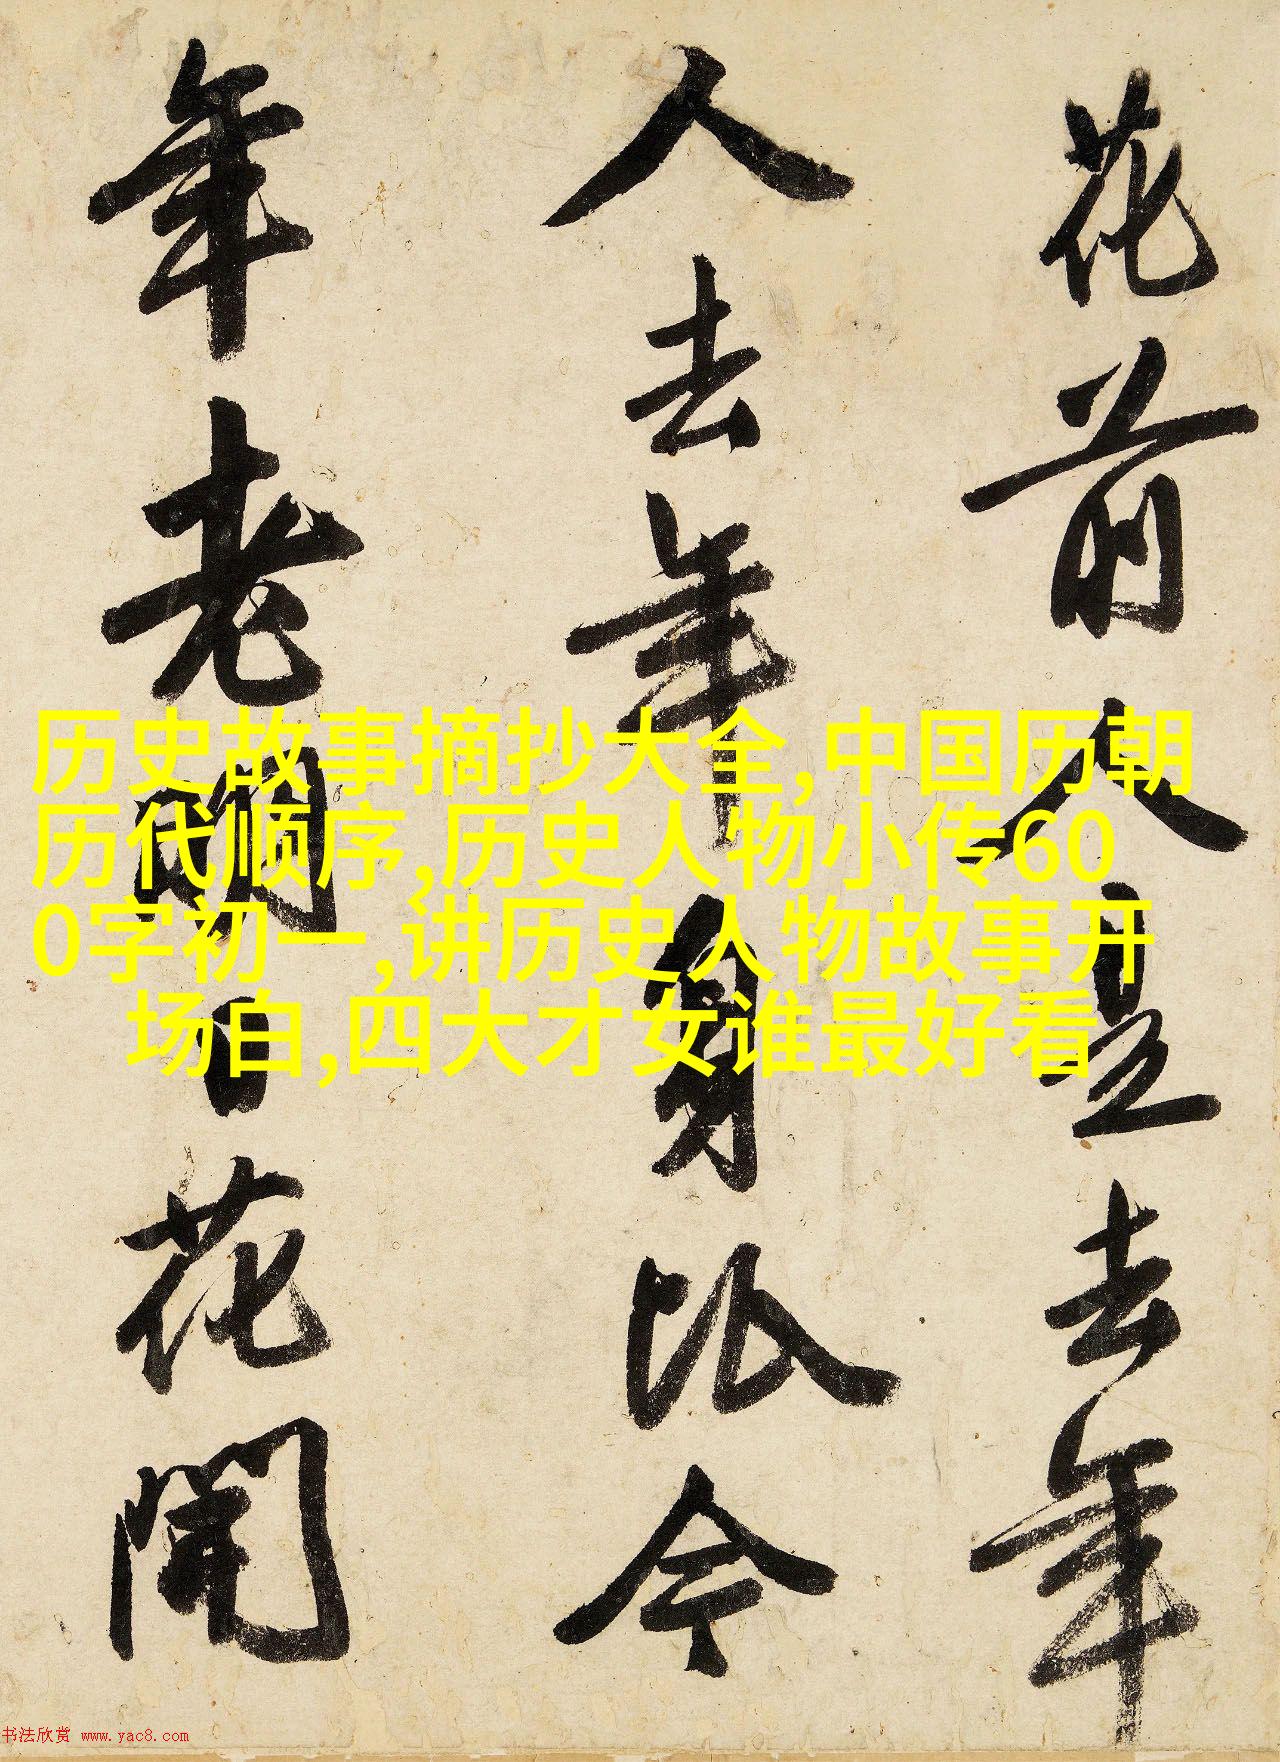 花前人是去年
人去年身比今
年老明日花開
历史故事摘抄大全,中国历朝
历代顺序,历史人物小传60
0字初一,讲历史人物故事开
场白,四大才女谁最好看
书法欣赏 www.yac8.com